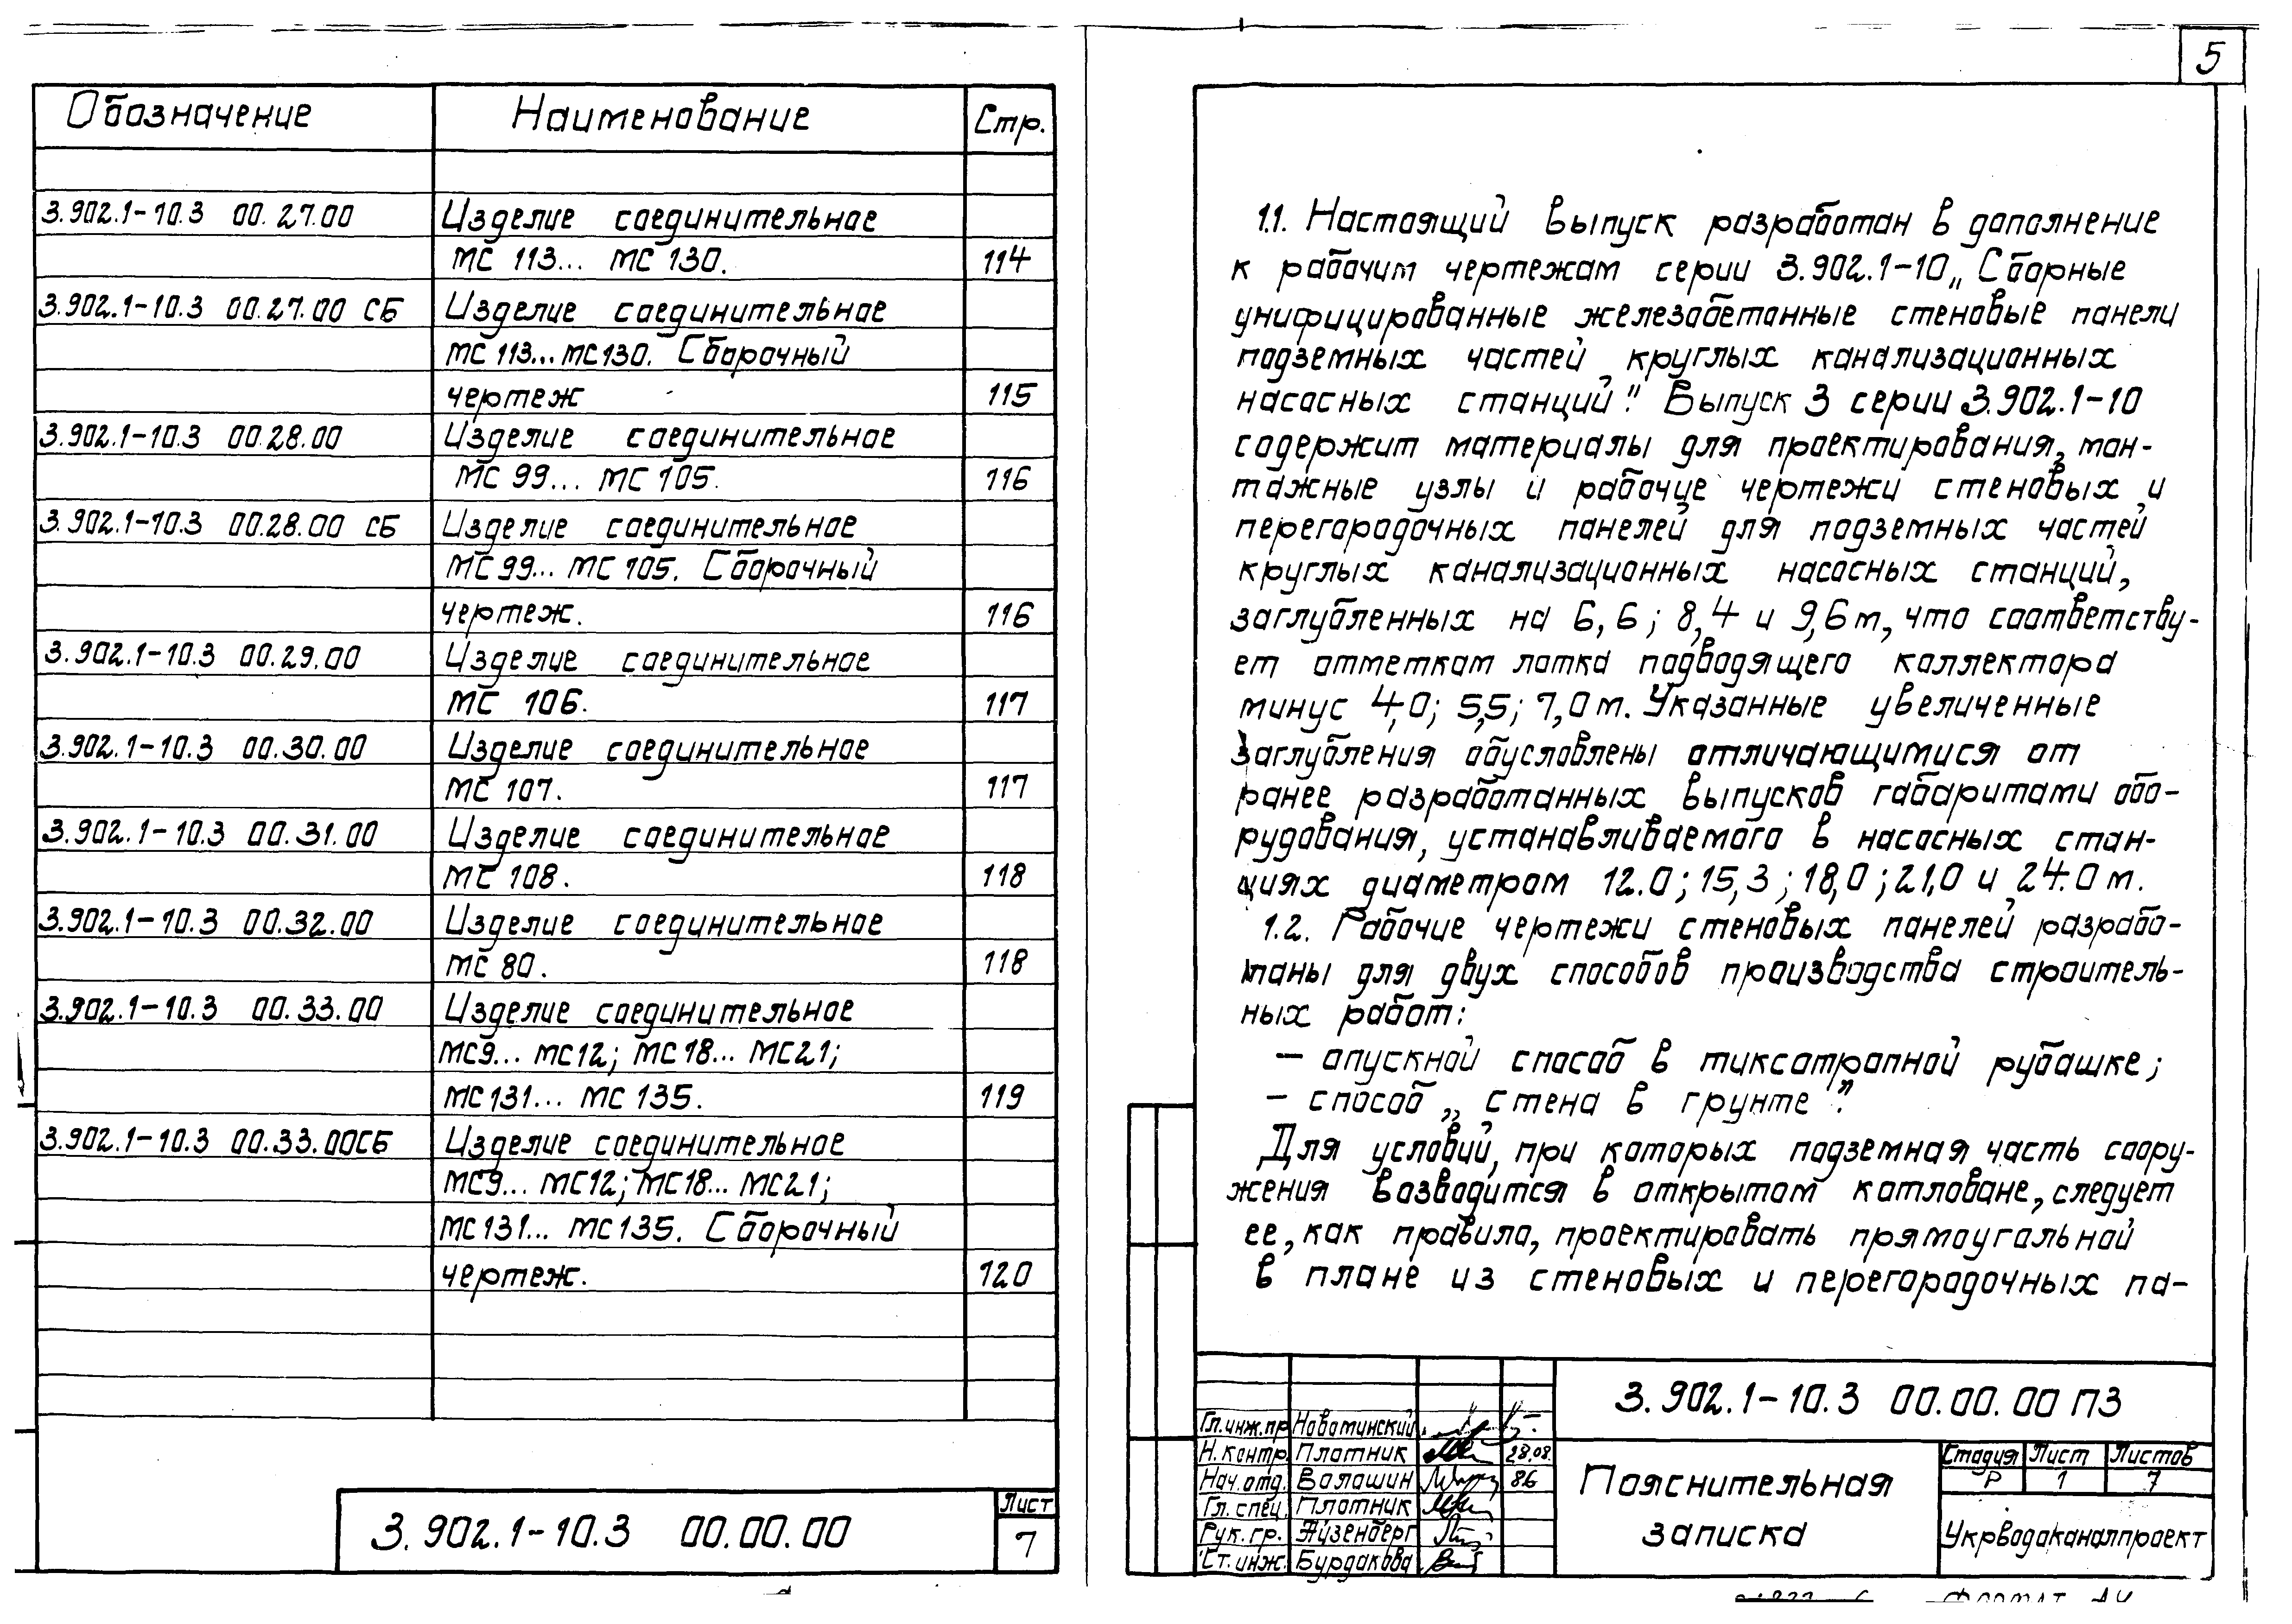 Обозначение Наименование Стр.
3.902.1-10.3 00.27.00 Изделие соединительное
МС 113... МС 130. 114
3.902.1-10.3 00.27.00 СБ Изделие соединительное
МС 113... МС 130. Сборочный
чертеж 115
3.902.1-10.3 00.28.00 Изделие соединительное
МС 99... МС 105. 116
3.902.1-10.3 00.28.00 СБ Изделие соединительное
МС 99... МС 105. Сборочный
чертеж. 116
3.902.1-10.3 00.29.00 Изделие соединительное
МС 106. 117
3.902.1-10.3 00.30.00 Изделие соединительное
МС 107. 117
3.902.1-10.3 00.31.00 Изделие соединительное
МС 108. 118
3.902.1-10.3 00.32.00 Изделие соединительное
МС 80. 118
3.902.1-10.3 00.33.00 Изделие соединительное
МС9... МС12; МС18... МС21;
МС131... МС 135. 119
3.902.1-10.3 00.33.00СБ Изделие соединительное
МС9... МС12; МС18... МС21;
МС131... МС135. Сборочный
чертеж. 120
3.902.1-10.3 00.00.00
Лист
7
5
1.1. Настоящий выпуск разработан в дополнение
к рабочим чертежам серии 3.902.1-10 „Сборные
унифицированные железобетонные стеновые панели
подземных частей круглых канализационных
насосных станций". Выпуск 3 серии 3.902.1-10
содержит материалы для проектирования, мон-
тажные узлы и рабочие чертежи стеновых и
перегородочных панелей для подземных частей
круглых канализационных насосных станций,
заглубленных на 6,6; 8,4 и 9,6 м, что соответству-
ет отметкам лотка подводящего коллектора
минус 4,0; 5,5; 7,0 м. Указанные увеличенные
заглубления обусловлены отличающимися от
ранее разработанных выпусков габаритами обо-
рудования, устанавливаемого в насосных стан-
циях диаметром 12.0; 15,3; 18,0; 21,0 и 24.0 м.
1.2. Рабочие чертежи стеновых панелей разрабо-
таны для двух способов производства строитель-
ных работ:
— опускной способ в тиксотропной рубашке;
- способ „стена в грунте".
Для условий, при которых подземная часть соору-
жения возводится в открытом котловане, следует
ее, как правило, проектировать прямоугольной
в плане из стеновых и перегородочных па-
3.902.1-10.3 00.00.00 ПЗ
Гл.инж.пр Новоминский
Н. контр. Плотник 28.08.
Нач. отд. Волошин 86
Гл. спец. Плотник
Рук. гр. Эйзенберг
Ст. инж. Бурдакова
Пояснительная
записка
Стадия Лист Листов
Р 1 7
Укрводоканалпроект